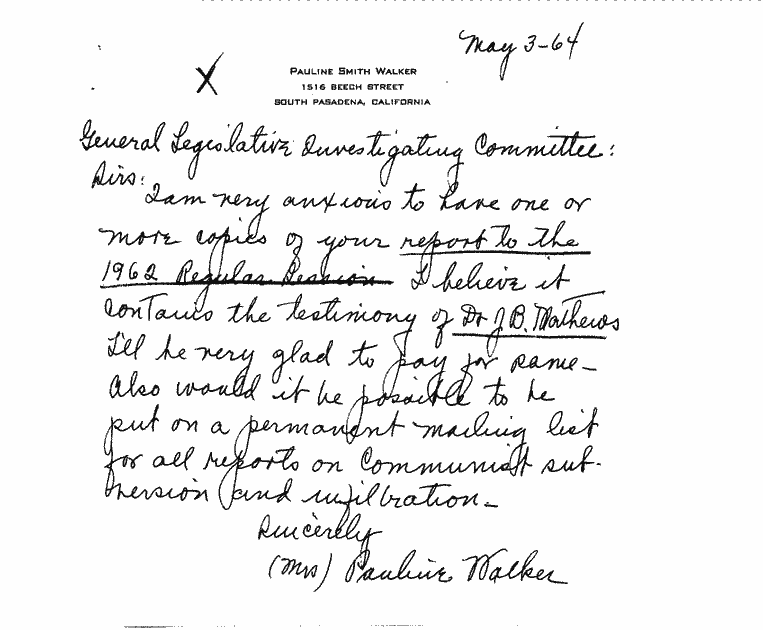 May 3-64
X
PAULINE SMITH WALKER
1516 BEECH STREET
SOUTH PASADENA, CALIFORNIA
General Legislative Investigating Committee:
Sirs:
I am very anxious to have one or
more copies of your report to the
1962 Regular Session I believe it
contains the testimony of Dr J. B. Mathews
I'll be very glad to pay for same –
Also would it be possible to be
put on a permanent mailing list
for all reports on Communist sub-
version and infiltration –
Sincerely
(Mrs) Pauline Walker